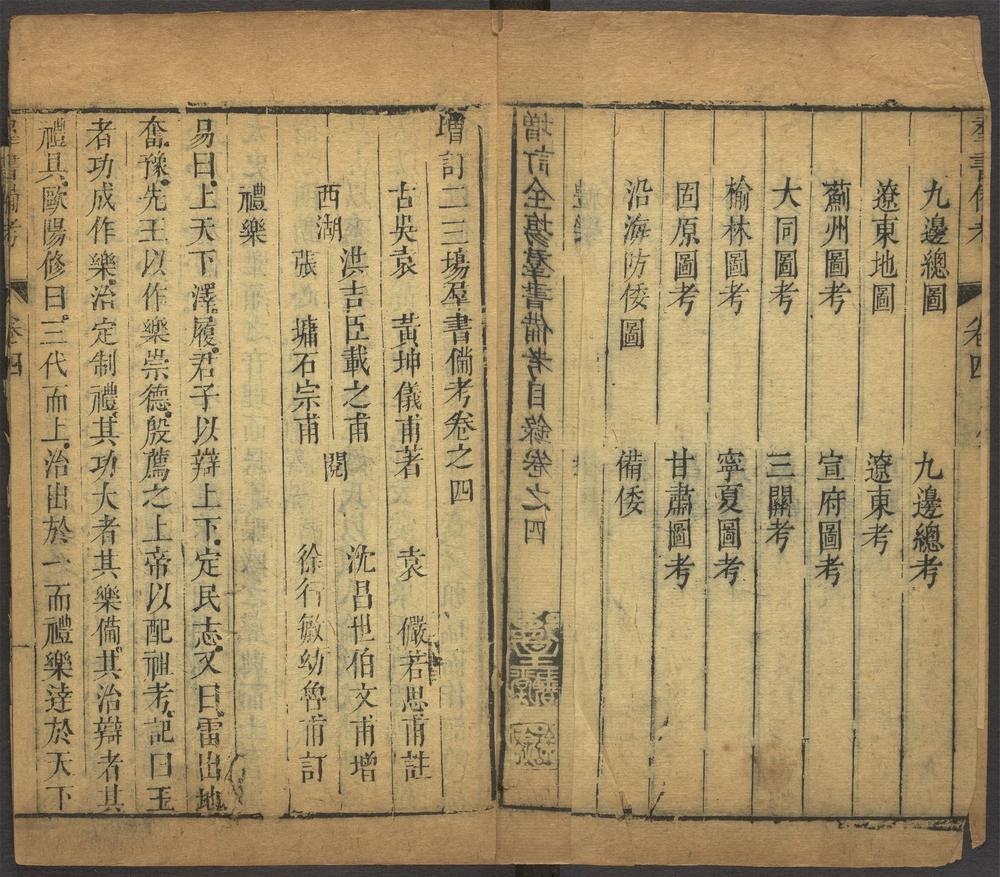 羣書備考 卷四
九邊總圖 九邊總考
遼東地圖 遼東考
薊州圖考 宣府圖考
大同圖考 三關考
榆林圖考 寧夏圖考
固原圖考 甘肅圖考
沿海防倭圖 備倭
增訂全場羣書備考目錄卷之四
增訂二三塲羣書備考卷之四
古吳袁 黃坤儀甫著 袁 儼若思甫註
西湖 洪吉臣載之甫 閱 沈昌世伯文甫增
張 墉石宗甫 徐行敏幼魯甫訂
禮樂
易曰上天下澤履君子以辯上下定民志又曰雷出地
奮豫先王以作樂崇德殷薦之上帝以配祖考記曰王
者功成作樂治定制禮其功大者其樂備其治辯者其
禮具歐陽修曰三代而上治出於一而禮樂達於天下
羣書備考 卷四